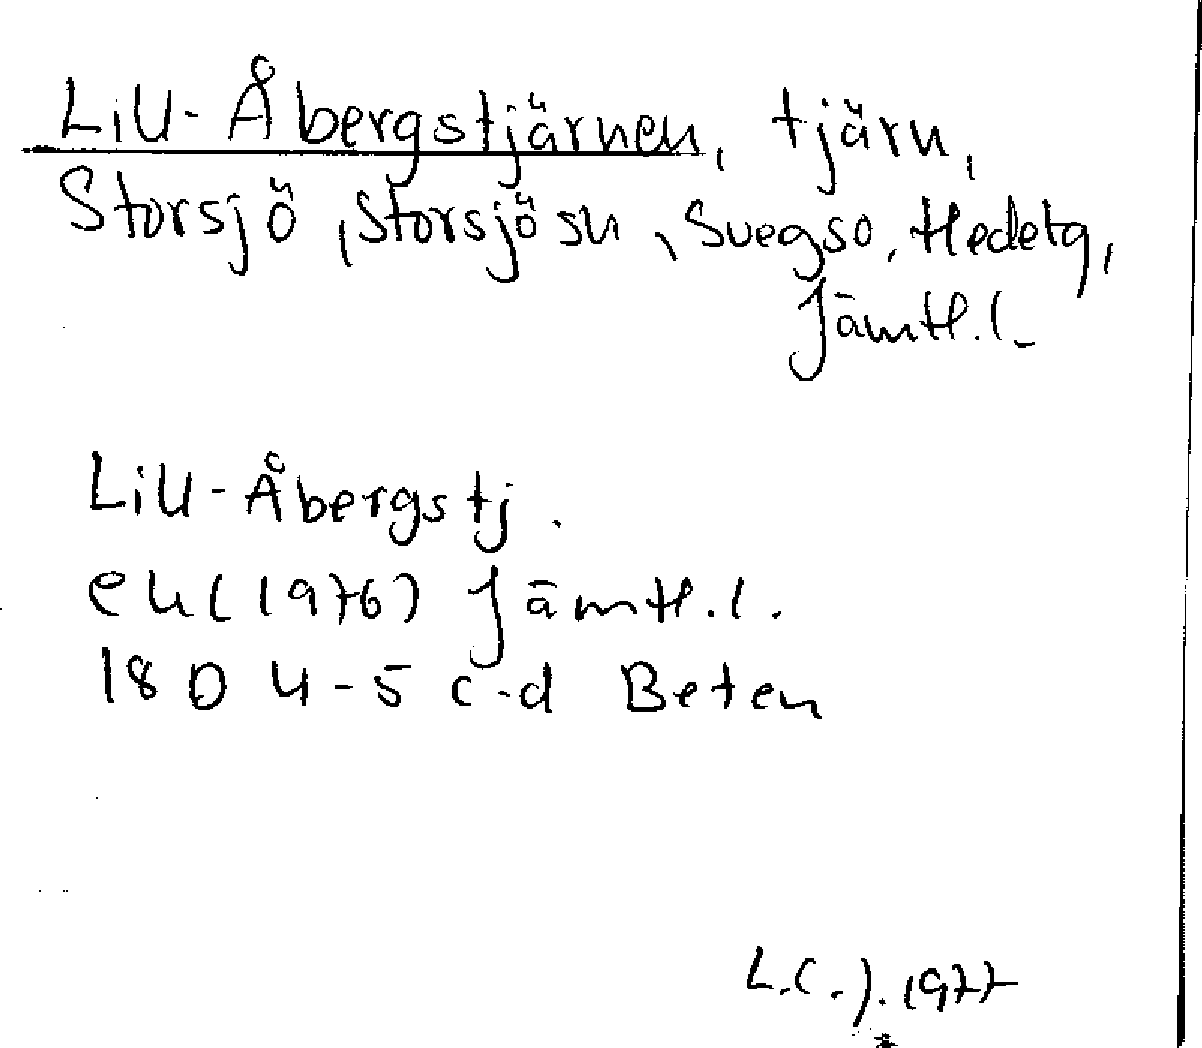 Lill-Åbergstjärnen, tjärn,
Storsjö, Storsjö sn, Svegs o, Hedetg,
Jämtl.l.
Lill-Åbergstj.
ek (1976) Jämtl.l.
18D 4-5 c-d Beten
L.C.J. 1977